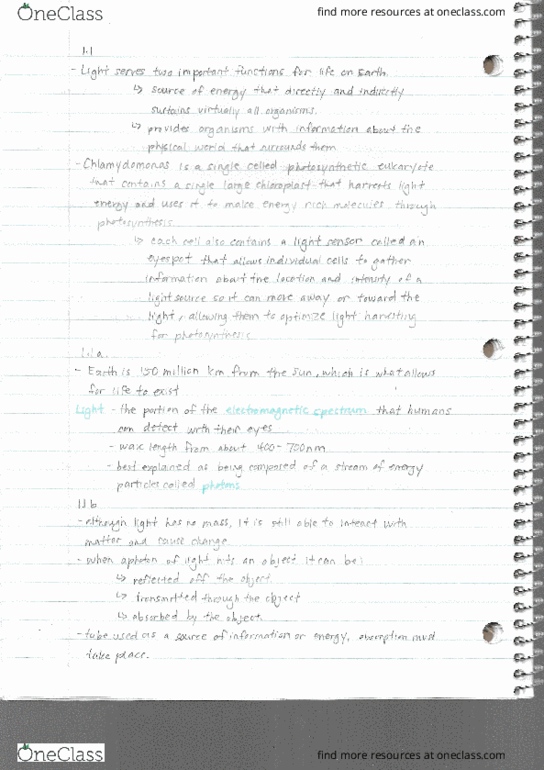 OneClass
find more resources at oneclass.com
1.1
- Light serves two important functions for life on Earth.
↳ source of energy that directly and indirectly
sustains virtually all organisms.
↳ provides organisms with information about the
physical world that surrounds them
- Chlamydomonas is a single celled photosynthetic eukaryote
that contains a single large chloroplast that harvests light
energy and uses it to make energy rich molecules through
photosynthesis
↳ each cell also contains a light sensor called an
eyespot that allows individual cells to gather
information about the location and intensity of a
light source so it can move away or toward the
light, allowing them to optimize light harvesting
for photosynthesis
1.1 a
- Earth is 150 million km from the sun, which is what allows
for life to exist
Light - the portion of the electromagnetic spectrum that humans
can detect with their eyes
- wave length from about 400-700nm
- best explained as being composed of a stream of energy
particles called photons
1.1 b
- although light has no mass, it is still able to interact with
matter and cause change
- when a photon of light hits an object it can be:
↳ reflected off the object
↳ transmitted through the object
↳ absorbed by the object
- to be used as a source of information or energy, absorption must
take place.
OneClass
find more resources at oneclass.com